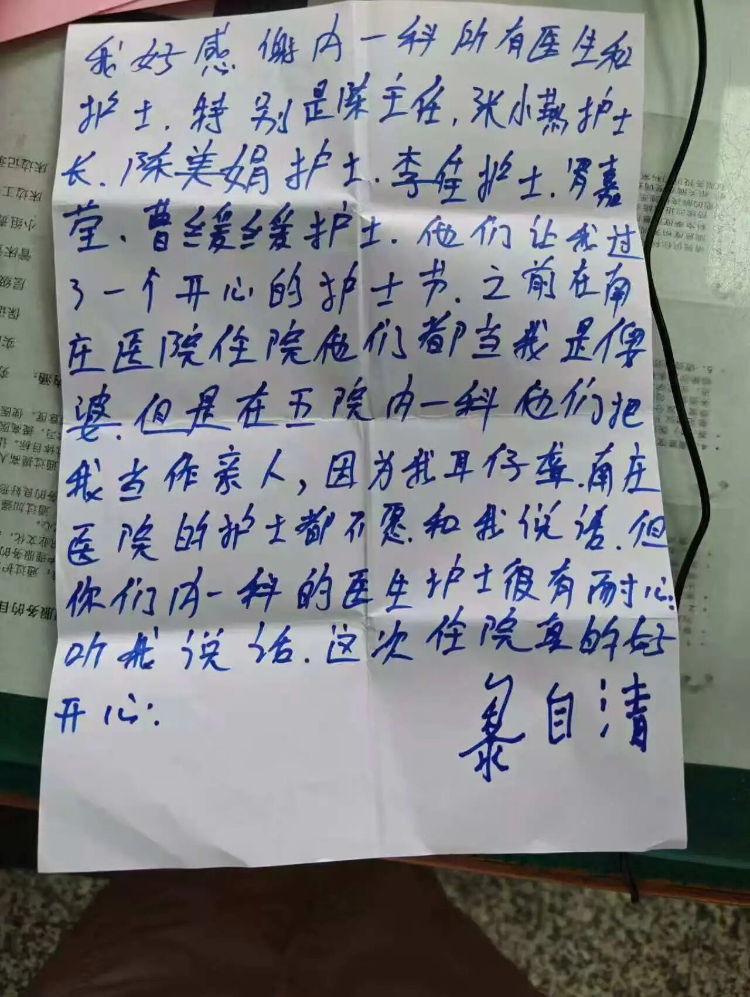 我好感谢内一科所有医生和
护士.特别是陈主任.张小燕护士
长.陈美娟护士.李佳护士.罗嘉
莹、曹缓缓护士.他们让我过
了一个开心的护士节.之前在南
庄医院住院他们都当我是傻
婆.但是在五院内一科他们把
我当作亲人,因为我耳仔聋.南庄
医院的护士都不愿和我说话.但
你们内一科的医生护士很有耐心
听我说话.这次住院真的好
开心.
自清